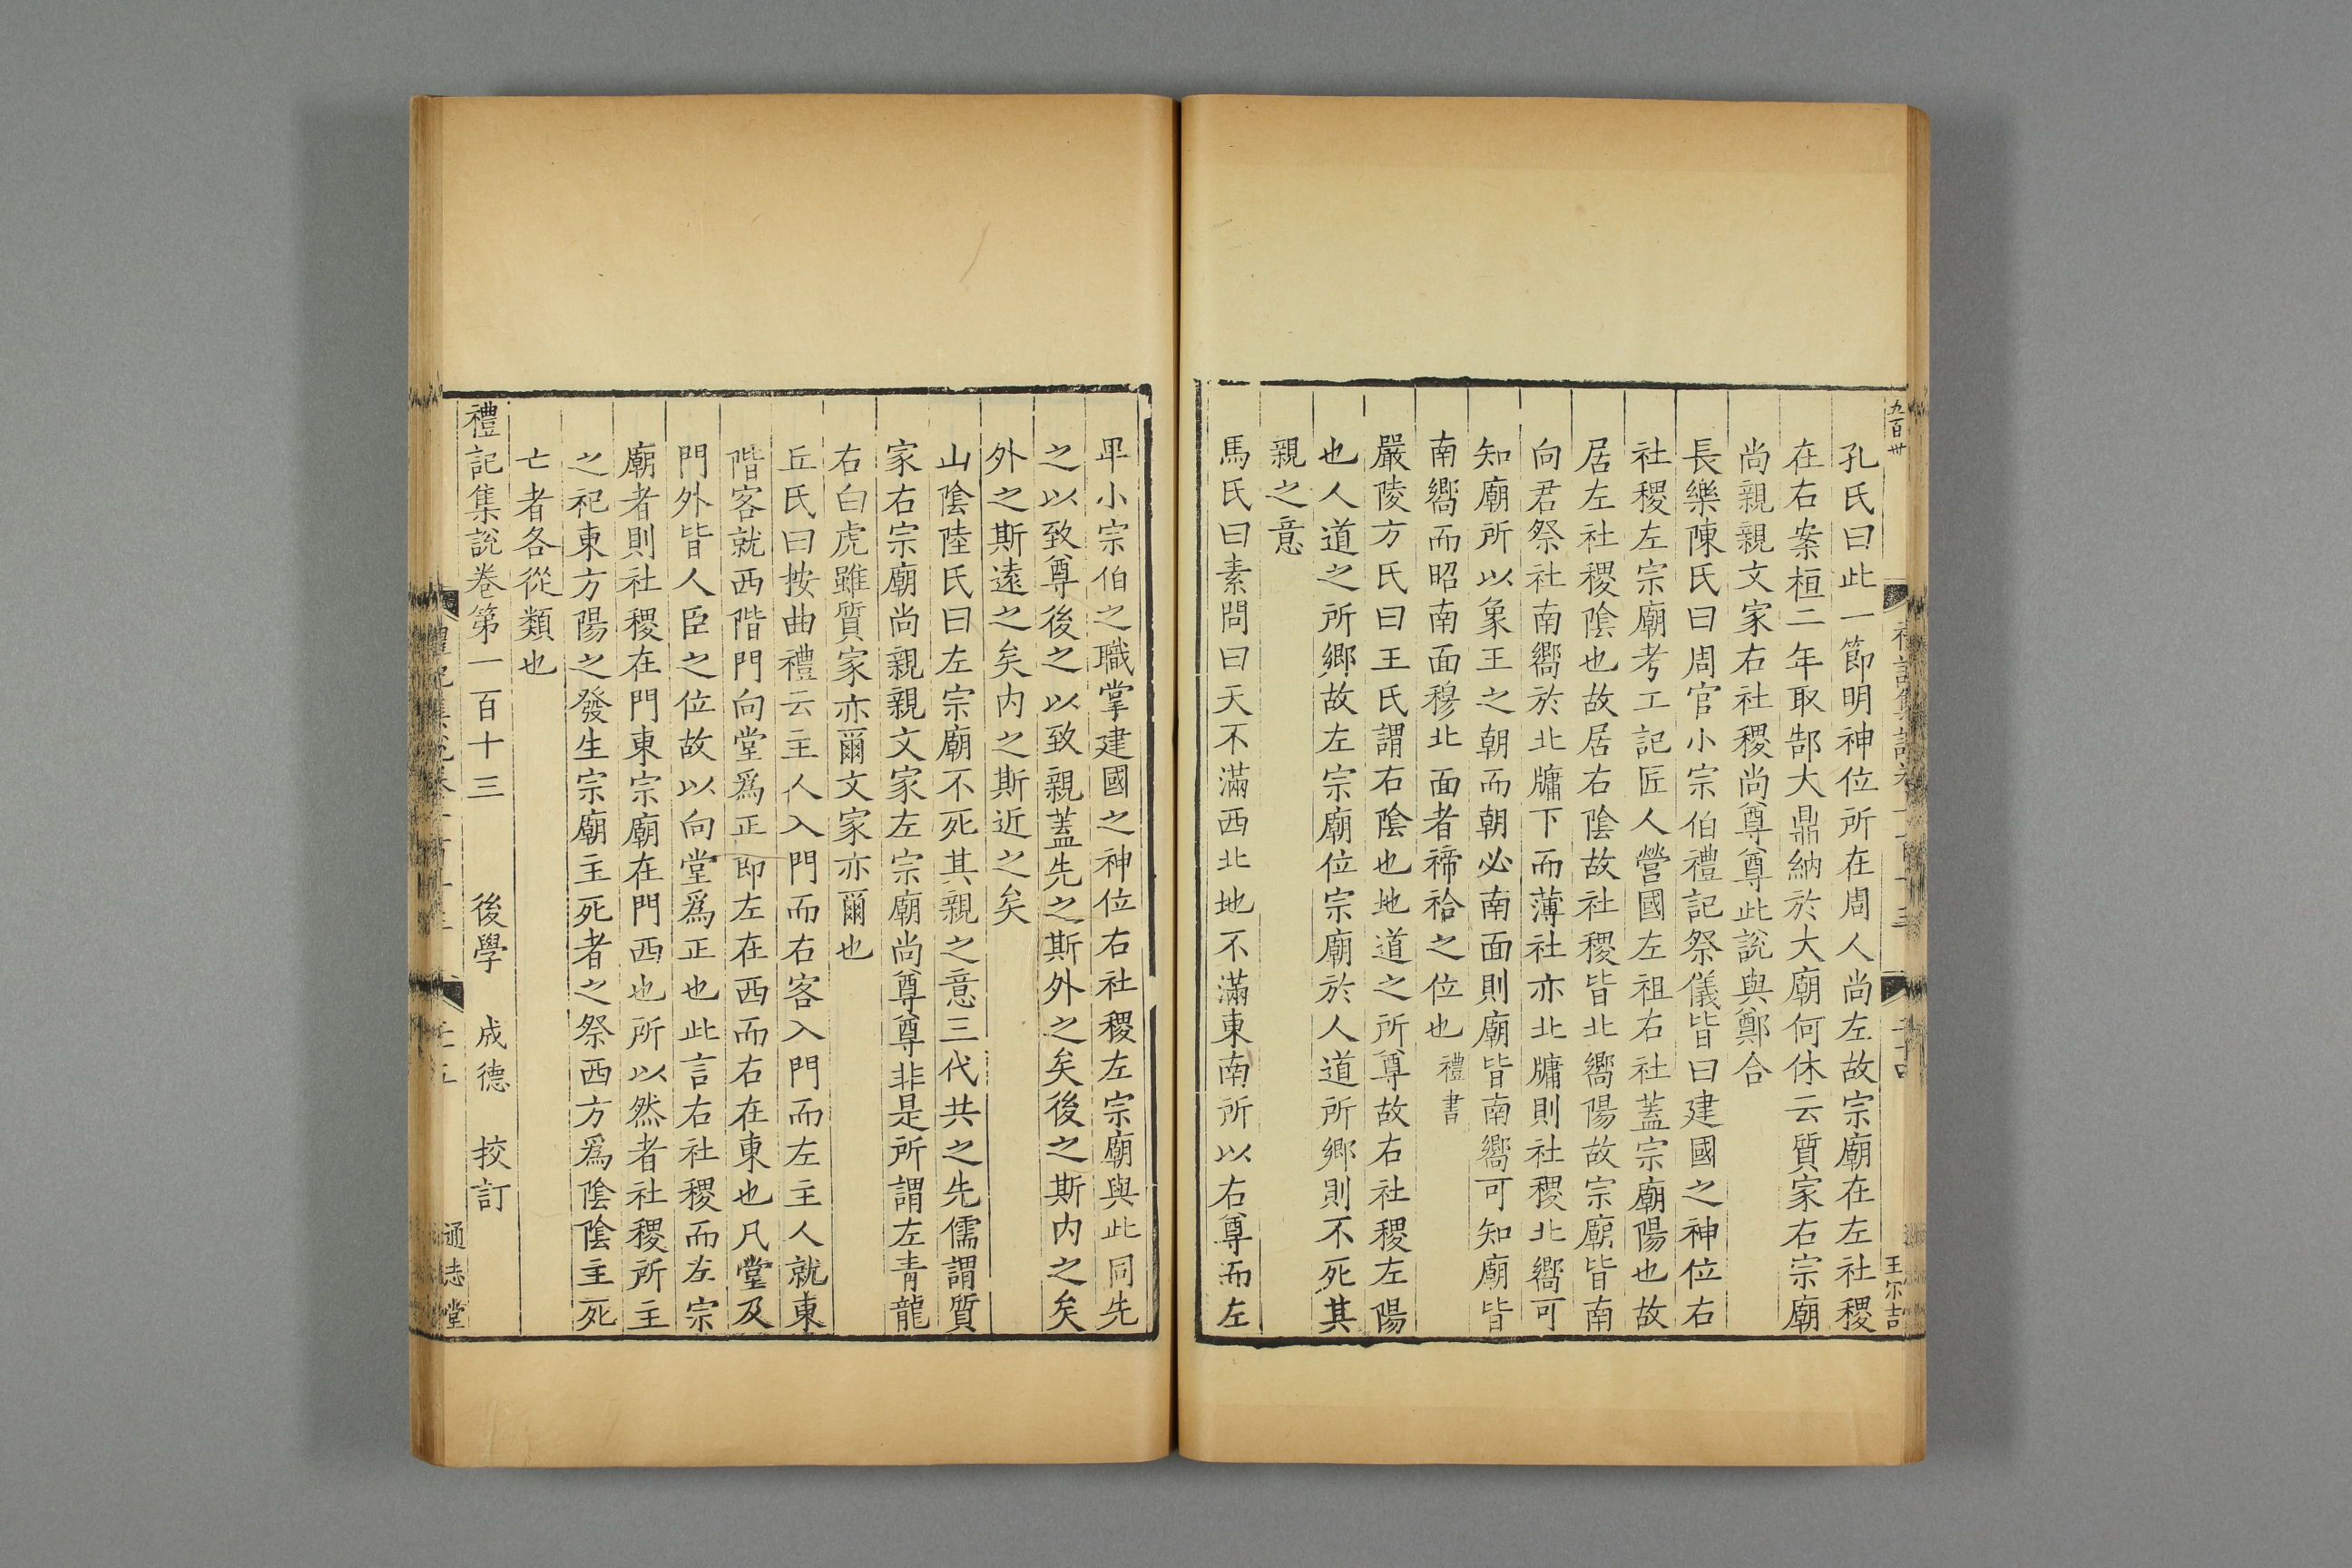 九百卅
孔氏曰此一節明神位所在周人尚左故宗廟在左社稷
在右案桓二年取郜大鼎納於大廟何休云質家右宗廟
尚親親文家右社稷尚尊尊此說與鄭合
長樂陳氏曰周官小宗伯禮記祭儀皆曰建國之神位右
社稷左宗廟考工記匠人營國左祖右社蓋宗廟陽也故
居左社稷陰也故居右陰故社稷皆北嚮陽故宗廟皆南
向君祭社南嚮於北牗下而薄社亦北牗則社稷北嚮可
知廟所以象王之朝而朝必南面則廟皆南嚮可知廟皆
南嚮而昭南面穆北面者禘祫之位也禮書
嚴陵方氏曰王氏謂右陰也地道之所尊故右社稷左陽
也人道之所鄉故左宗廟位宗廟於人道所鄉則不死其
親之意
馬氏曰素問曰天不滿西北地不滿東南所以右尊而左
王尔吉
畢小宗伯之職掌建國之神位右社稷左宗廟與此同先
之以致尊後之以致親蓋先之斯外之矣後之斯内之矣
外之斯遠之矣内之斯近之矣
山陰陸氏曰左宗廟不死其親之意三代共之先儒謂質
家右宗廟尚親親文家左宗廟尚尊尊非是所謂左青龍
右白虎雖質家亦爾文家亦爾也
丘氏曰按曲禮云主人入門而右客入門而左主人就東
階客就西階門向堂爲正即左在西而右在東也凡堂及
門外皆人臣之位故以向堂爲正也此言右社稷而左宗
廟者則社稷在門東宗廟在門西也所以然者社稷所主
之祀東方陽之發生宗廟主死者之祭西方爲陰陰主死
亡者各從類也
禮記集說卷第一百十三　後學　成德　挍訂
通志堂